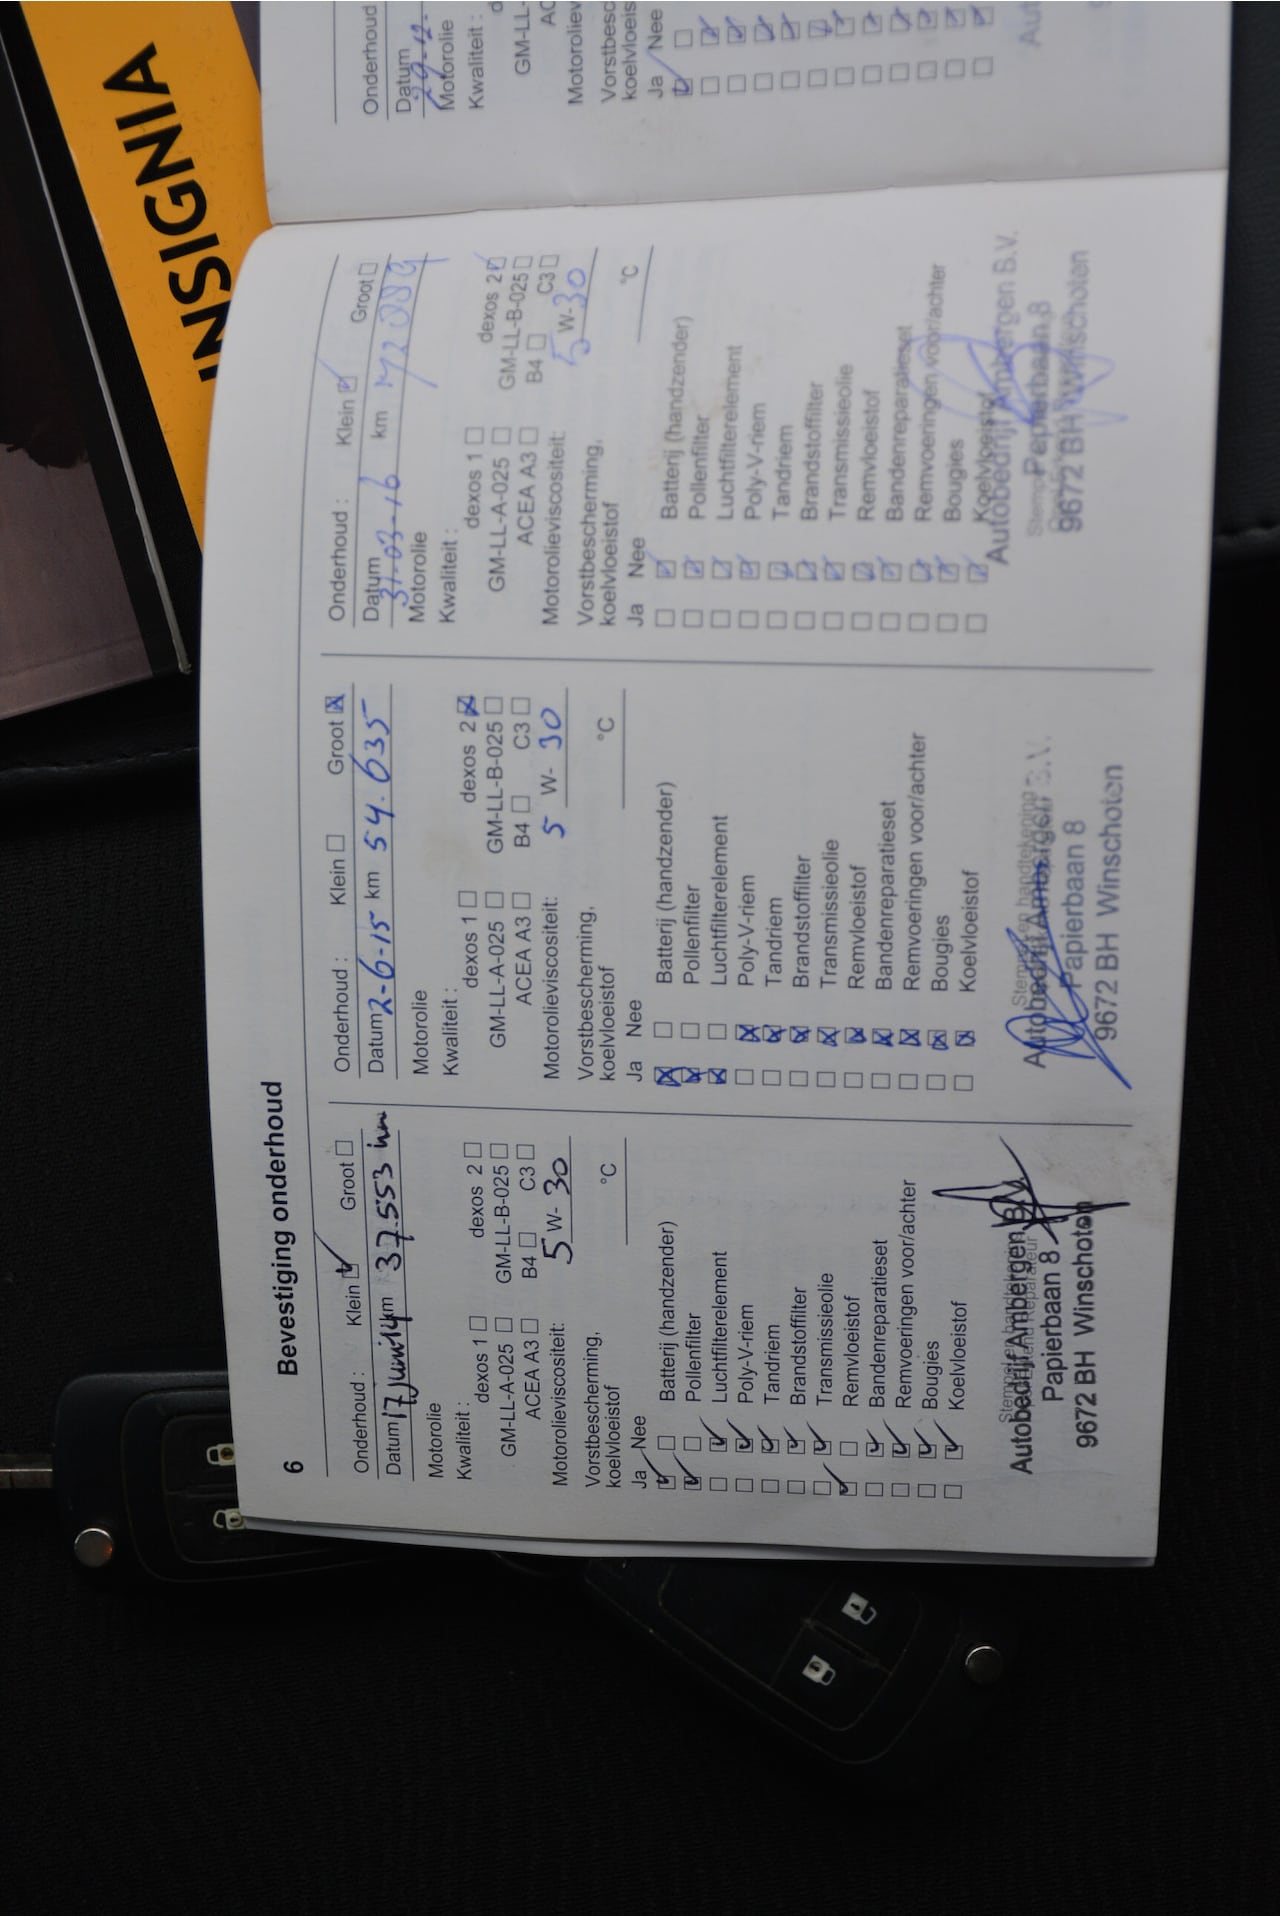 INSIGNIA
6 Bevestiging onderhoud
Onderhoud : Klein Groot
Datum 17 juni 14 km 37.553 km
Motorolie
Kwaliteit :
dexos 1 dexos 2
GM-LL-A-025 GM-LL-B-025
ACEA A3 B4 C3
Motorolieviscositeit: 5 W- 30
Vorstbescherming,
koelvloeistof °C
Ja Nee
Batterij (handzender)
Pollenfilter
Luchtfilterelement
Poly-V-riem
Tandriem
Brandstoffilter
Transmissieolie
Remvloeistof
Bandenreparatieset
Remvoeringen voor/achter
Bougies
Koelvloeistof
Autobedrijf Ambergen B.V.
Papierbaan 8
9672 BH Winschoten
Onderhoud : Klein Groot
Datum 2-6-15 km 54.635
Motorolie
Kwaliteit :
dexos 1 dexos 2
GM-LL-A-025 GM-LL-B-025
ACEA A3 B4 C3
Motorolieviscositeit: 5 W- 30
Vorstbescherming,
koelvloeistof °C
Ja Nee
Batterij (handzender)
Pollenfilter
Luchtfilterelement
Poly-V-riem
Tandriem
Brandstoffilter
Transmissieolie
Remvloeistof
Bandenreparatieset
Remvoeringen voor/achter
Bougies
Koelvloeistof
Stempel en handtekening
Autobedrijf Ambergen B.V.
Papierbaan 8
9672 BH Winschoten
Onderhoud : Klein Groot
Datum 31-03-16 km 72089
Motorolie
Kwaliteit :
dexos 1 dexos 2
GM-LL-A-025 GM-LL-B-025
ACEA A3 B4 C3
Motorolieviscositeit: 5 W- 30
Vorstbescherming,
koelvloeistof °C
Ja Nee
Batterij (handzender)
Pollenfilter
Luchtfilterelement
Poly-V-riem
Tandriem
Brandstoffilter
Transmissieolie
Remvloeistof
Bandenreparatieset
Remvoeringen voor/achter
Bougies
Koelvloeistof
Autobedrijf Ambergen B.V.
Papierbaan 8
9672 BH Winschoten
Onderhoud
Datum 29-12-
Motorolie
Kwaliteit :
GM-LL-
Motoroliev
Vorstbesc
koelvloeis
Ja Nee
Aut